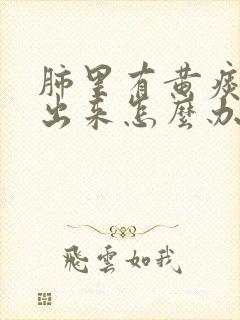 肺里有黄痰
出来怎麼办
飛雲如我